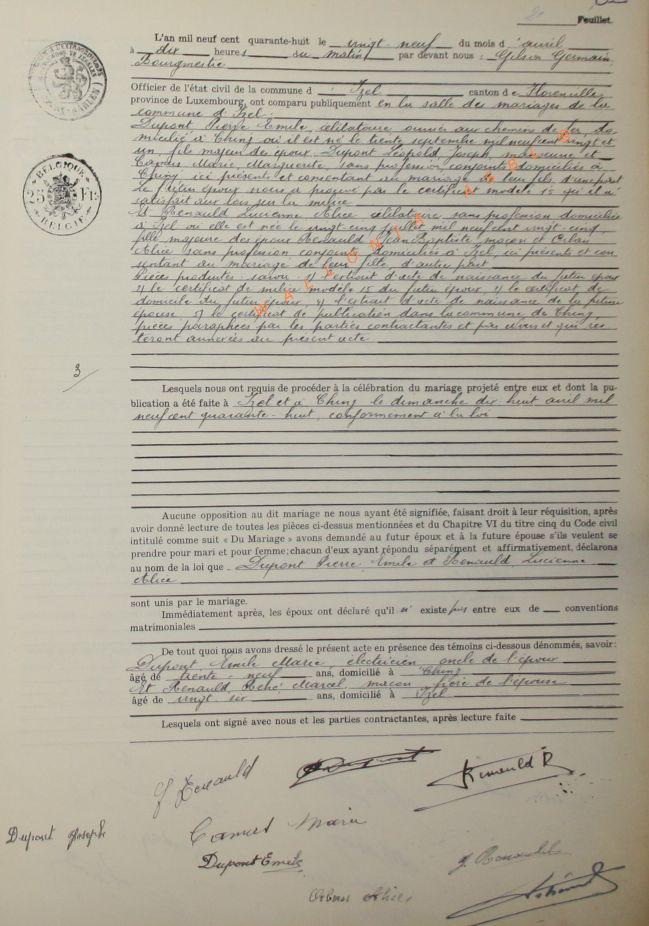 Feuillet.
L'an mil neuf cent quarante-huit le vingt-neuf du mois d'avril
à dix heures du matin par devant nous : Gilson Germain
Bourgmestre
Officier de l'état civil de la commune d : Izel canton de Florenville
province de Luxembourg, ont comparu publiquement en la salle des mariages de la
commune d'Izel :
Dupont Pierre Emile, célibataire ouvrier aux chemins de fer, do-
micilié à Chiny où il est né le trente septembre mil neuf cent vingt et
un fils majeur des époux Dupont Léopold Joseph, et
Marie Marguerite sans profession conjoints domiciliés à
Chiny ici présents et consentant au mariage de leur fils, d'une part
Le futur époux nous a prouvé par le certificat modèle 15 qu'il a
satisfait aux lois sur la milice
Et Renauld Lucienne Alice célibataire, sans profession domiciliée
à Izel où elle est née le vingt-cinq juillet mil neuf cent vingt-cinq,
fille majeure des époux Renauld Jean Baptiste, maçon et
Alice sans profession conjoints domiciliés à Izel, ici présents et con-
sentant au mariage de leur fille, d'autre part
Pièces produites savoir : 1/ l'extrait d'acte de naissance du futur époux
2/ le certificat de milice modèle 15 du futur époux, 3/ le certificat de
domicile du futur époux, 4/ l'extrait d'acte de naissance de la future
épouse, 5/ le certificat de publication dans la commune de Chiny,
pièces paraphées par les parties contractantes et par Nous et qui res-
teront annexées au présent acte
3
Lesquels nous ont requis de procéder à la célébration du mariage projeté entre eux et dont la pu-
blication a été faite à Izel et à Chiny le dimanche dix-huit avril mil
neuf cent quarante-huit, conformément à la loi
Aucune opposition au dit mariage ne nous ayant été signifiée, faisant droit à leur réquisition, après
avoir donné lecture de toutes les pièces ci-dessus mentionnées et du Chapitre VI du titre cinq du Code civil
intitulé comme suit « Du Mariage » avons demandé au futur époux et à la future épouse s'ils veulent se
prendre pour mari et pour femme; chacun d'eux ayant répondu séparément et affirmativement, déclarons
au nom de la loi que Dupont Pierre Emile et Renauld Lucienne
Alice
sont unis par le mariage.
Immédiatement après, les époux ont déclaré qu'il n'existe pas entre eux de conventions
matrimoniales
De tout quoi nous avons dressé le présent acte en présence des témoins ci-dessous dénommés, savoir:
Dupont Emile Marie, électricien, oncle de l'époux
âgé de trente-neuf ans, domicilié à Chiny
Et Renauld René Marcel, maçon, frère de l'épouse
âgé de vingt six ans, domicilié à Izel
Lesquels ont signé avec nous et les parties contractantes, après lecture faite
BELGIQUE
25 Frs
BELGIË
Renauld
Dupont
Renauld R
Dupont Joseph
Marie
Dupont Emile
Renauld